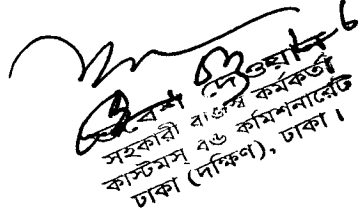 দেওয়ান
সহকারী রাজস্ব কর্মকর্তা
কাস্টমস্ বন্ড কমিশনারেট
ঢাকা (দক্ষিণ), ঢাকা।